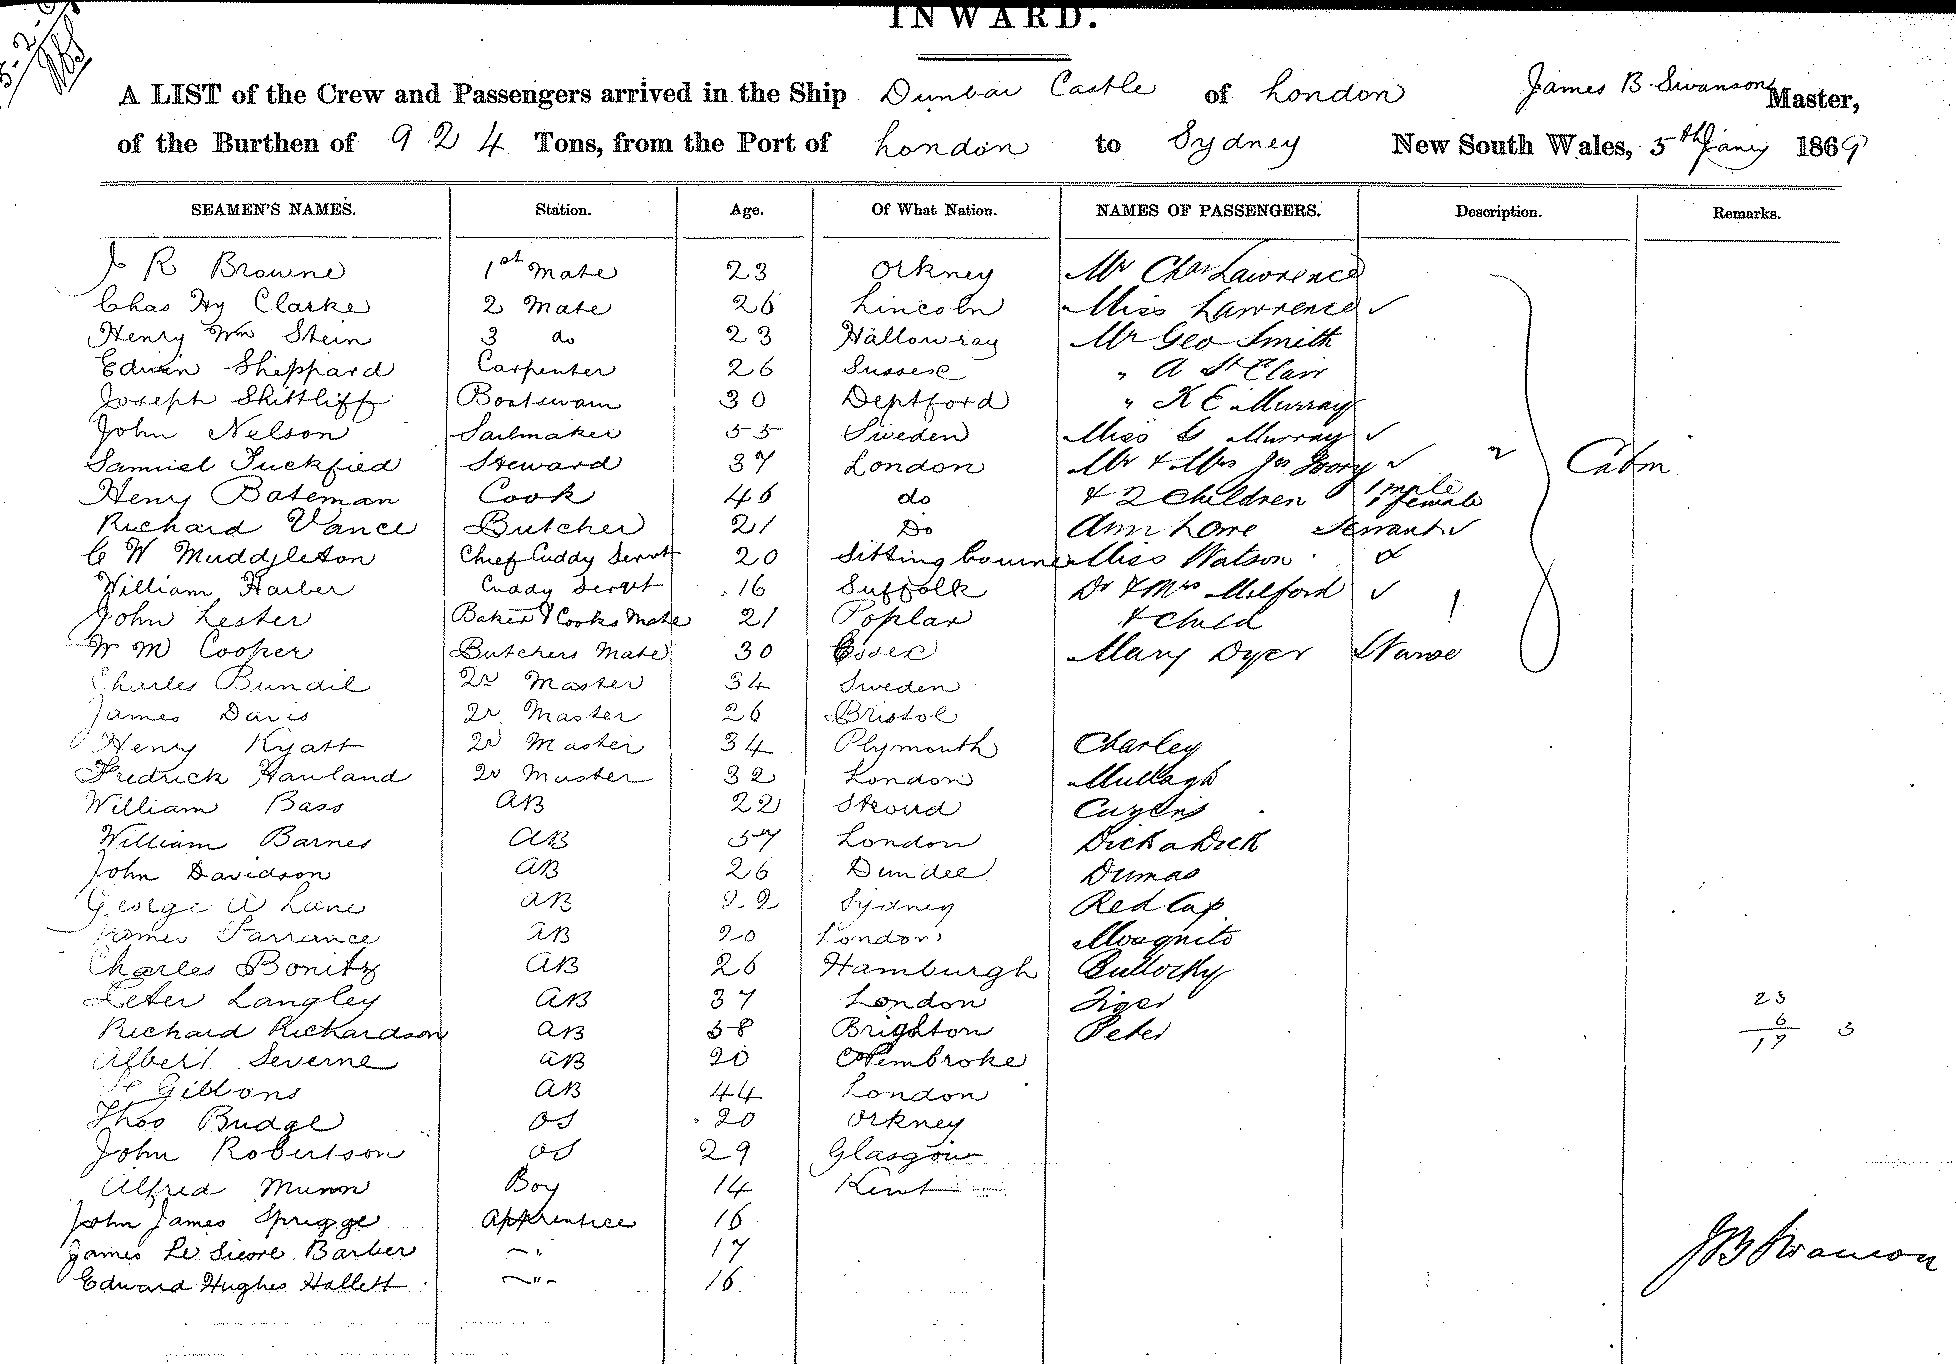 INWARD.
A LIST of the Crew and Passengers arrived in the Ship Dunbar Castle of London James B. Swanson Master,
of the Burthen of 924 Tons, from the Port of London to Sydney New South Wales, 5th Jany 1869
SEAMEN'S NAMES. Station. Age. Of What Nation. NAMES OF PASSENGERS. Description. Remarks.
J R Browne 1st Mate 23 Orkney Mr Chas Lawrence
Chas Hy Clarke 2 Mate 26 Lincoln Miss Lawrence ✓
Henry Wm Stein 3 do 23 Halloway Mr Geo Smith
Edwin Sheppard Carpenter 26 Sussex " A St Clair
Joseph Shittliff Boatswain 30 Deptford " K E Murray
John Nelson Sailmaker 55 Sweden Miss G Murray ✓
Samuel Tuckfied Steward 37 London Mr & Mrs Jas Ivory ✓ 2 Cabin
Henry Bateman Cook 46 do & 2 Children 1 male 1 female
Richard Vance Butcher 21 Do Ann Lowe Servant ✓
C W Muddleton Chief Cuddy Servt 20 Sittingbourne Miss Watson
William Harber Cuddy Servt 16 Suffolk Dr & Mrs Milford ✓ 1
John Lester Baker & Cooks Mate 21 Poplar & Child
W M Cooper Butchers Mate 30 Essex Mary Dyer Nurse
Charles Bundil Qr Master 34 Sweden
James Davis Qr Master 26 Bristol
Henry Kyatt Qr Master 34 Plymouth Charley
Fredrick Hauland Qr Master 32 London Mullagh
William Bass AB 22 Stroud Cuzens
William Barnes AB 57 London Dick a Dick
John Davidson AB 26 Dundee Dumas
George A Lane AB 22 Sydney Red Cap
James Tarrance AB 20 London Mosquito
Charles Bonitz AB 26 Hamburgh Bullocky
Peter Langley AB 37 London Tiger 23
Richard Rickardson AB 38 Brighton Peter 6 3
Albert Severne AB 20 Pembroke 17
Gibbons AB 44 London
Thos Budge OS 20 Orkney
John Robertson OS 29 Glasgow
Alfred Munn Boy 14 Kent
John James Sprigge Apprentice 16
James Le Sieore Barber " 17
Edward Hughes Hallett " 16
J B Swanson